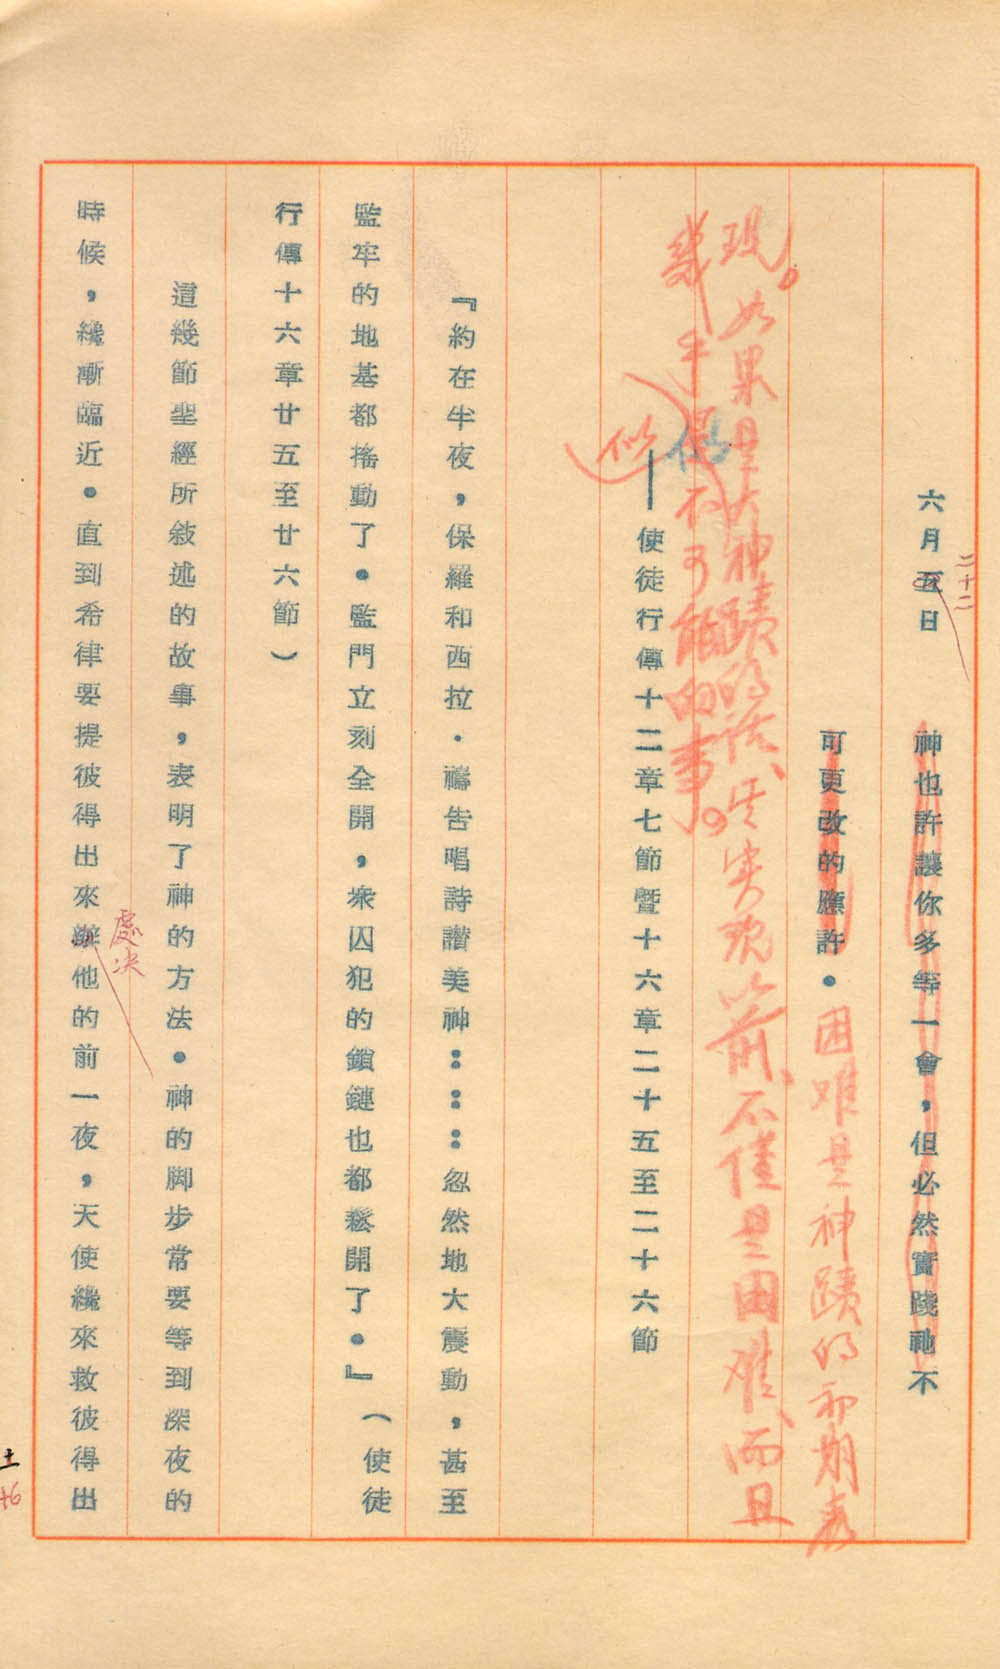 六月五日　神也許讓你多等一會，但必然實踐祂不
二十二
可更改的應許．困难是神蹟的初期表
现。如果是大神蹟的话、其实现以前、不僅是困难、而且
幾乎是不可能的事。
似
——使徒行傳十二章七節暨十六章二十五至二十六節
『約在半夜，保羅和西拉．禱告唱詩讃美神：：：忽然地大震動，甚至
監牢的地基都搖動了．監門立刻全開，衆囚犯的鎖鏈也都鬆開了．』（使徒
行傳十六章廿五至廿六節）
這幾節聖經所敍述的故事，表明了神的方法．神的脚步常要等到深夜的
時候，纔漸臨近．直到希律要提彼得出來辦他的前一夜，天使纔來救彼得出
處决